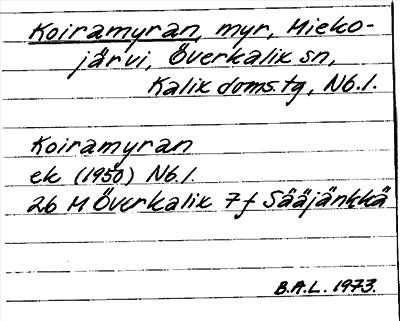 Koiramyran, myr, Mieko-
järvi, Överkalix sn,
Kalix doms.tg, Nb.l.
Koiramyran
ek (1950) Nb.l.
26 M Överkalix 7f Sääjänkkä
B.A.L. 1973.